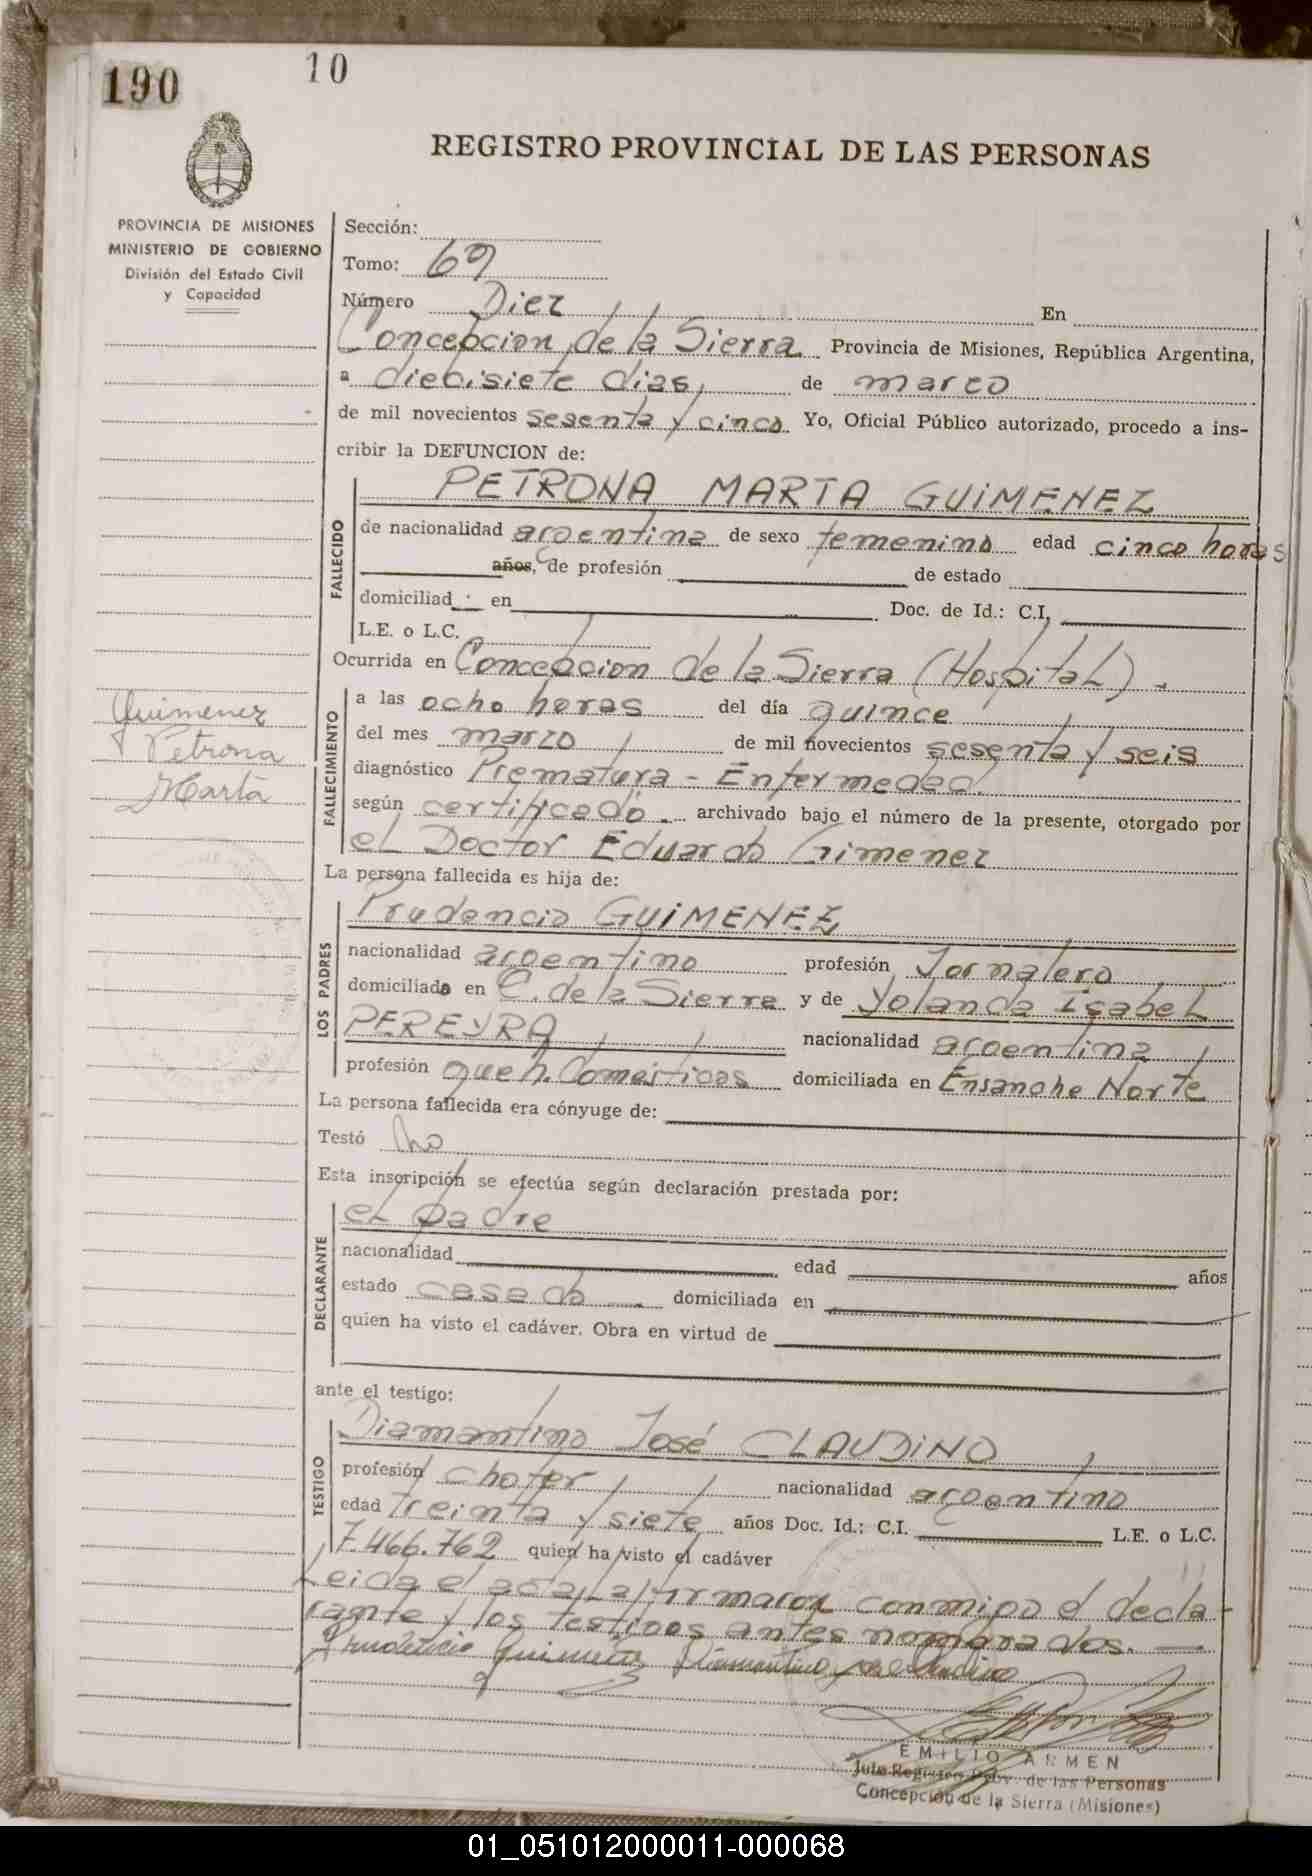 190
10
REGISTRO PROVINCIAL DE LAS PERSONAS
PROVINCIA DE MISIONES
MINISTERIO DE GOBIERNO
División del Estado Civil
y Capacidad
Sección:
Tomo: 69
Número Diez En
Concepcion de la Sierra Provincia de Misiones, República Argentina,
a diecisiete dias, de marzo
de mil novecientos sesenta y cinco Yo, Oficial Público autorizado, procedo a ins-
cribir la DEFUNCION de:
PETRONA MARTA GUiMENEZ
FALLECIDO
de nacionalidad argentina de sexo femenino edad cinco horas
años, de profesión de estado
domiciliad en Doc. de Id.: C.I.
L.E. o L.C.
Ocurrida en Concepcion de la Sierra (Hospital).
FALLECIMIENTO
a las ocho horas del día quince
del mes marzo de mil novecientos sesenta y seis
diagnóstico Prematura - Enfermedad.
según certificado archivado bajo el número de la presente, otorgado por
el Doctor Eduardo Gimenez
Guimenez
Petrona
Marta
La persona fallecida es hija de:
LOS PADRES
Prudencio GUiMENEZ
nacionalidad argentino profesión Jornalero
domiciliado en C. de la Sierra y de Yolanda Isabel
PEREYRA nacionalidad argentina
profesión queh. Domesticos domiciliada en Ensanche Norte
La persona fallecida era cónyuge de:
Testó no
Esta inscripción se efectúa según declaración prestada por:
DECLARANTE
el padre
nacionalidad edad años
estado casado domiciliada en
quien ha visto el cadáver. Obra en virtud de
ante el testigo:
TESTIGO
Diamantino José CLAUDiNO
profesión chofer nacionalidad argentino
edad treinta y siete años Doc. Id.: C.I. L.E. o L.C.
7.466.762 quien ha visto el cadáver
Leida el acta, la firmaron conmigo el decla-
rante y los testigos antes nombrados.
Prudencio Guimenez Diamantino José Claudino
EMILIO ARMEN
Jefe Registro Prov. de las Personas
Concepción de la Sierra (Misiones)
01_051012000011-000068